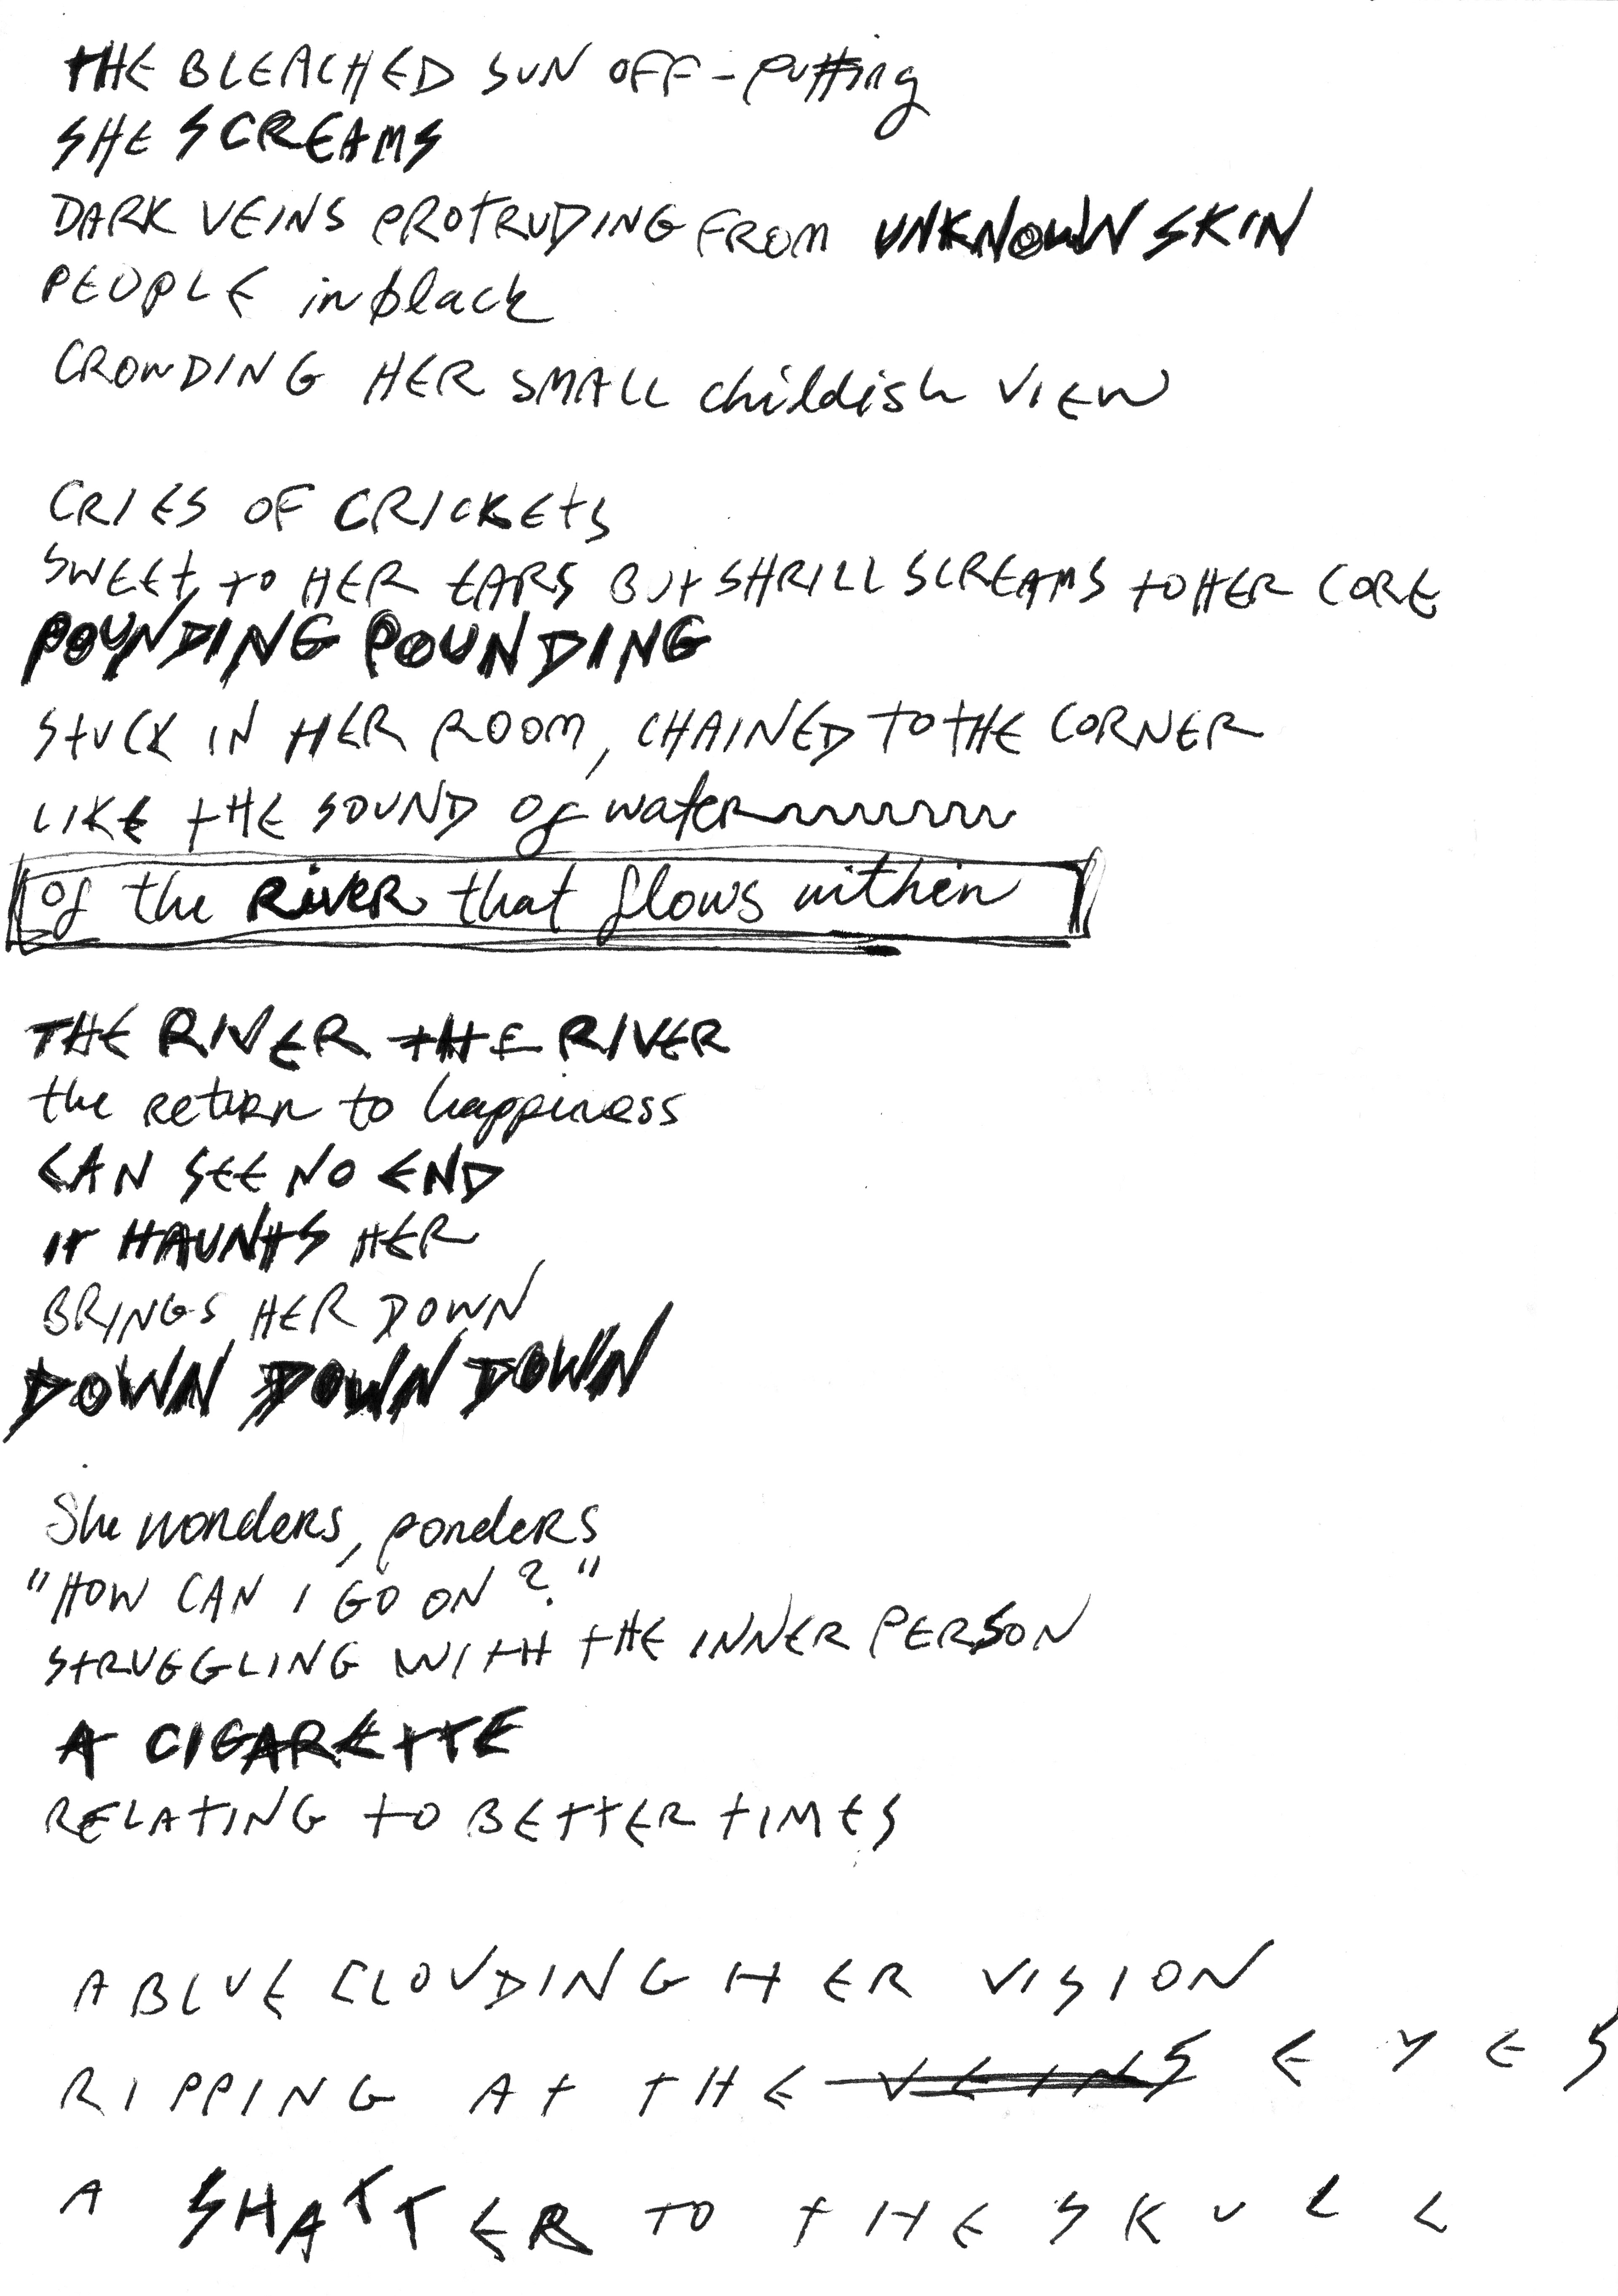 THE BLEACHED SUN OFF-putting
SHE SCREAMS
DARK VEINS PROTRUDING FROM UNKNOWN SKIN
PEOPLE in black
CROWDING HER SMALL childish VIEW
CRIES OF CRICKETS
SWEET TO HER EARS BUT SHRILL SCREAMS TO HER CORE
POUNDING POUNDING
STUCK IN HER ROOM, CHAINED TO THE CORNER
LIKE THE SOUND of water
of the RIVER that flows within
THE RIVER THE RIVER
the return to happiness
CAN SEE NO END
IT HAUNTS HER
BRINGS HER DOWN
DOWN DOWN DOWN
She wonders, ponders
"HOW CAN I GO ON?"
STRUGGLING WITH THE INNER PERSON
A CIGARETTE
RELATING TO BETTER TIMES
A BLUE CLOUDING HER VISION
RIPPING AT THE VEINS EYES
A SHATTER TO THE SKULL